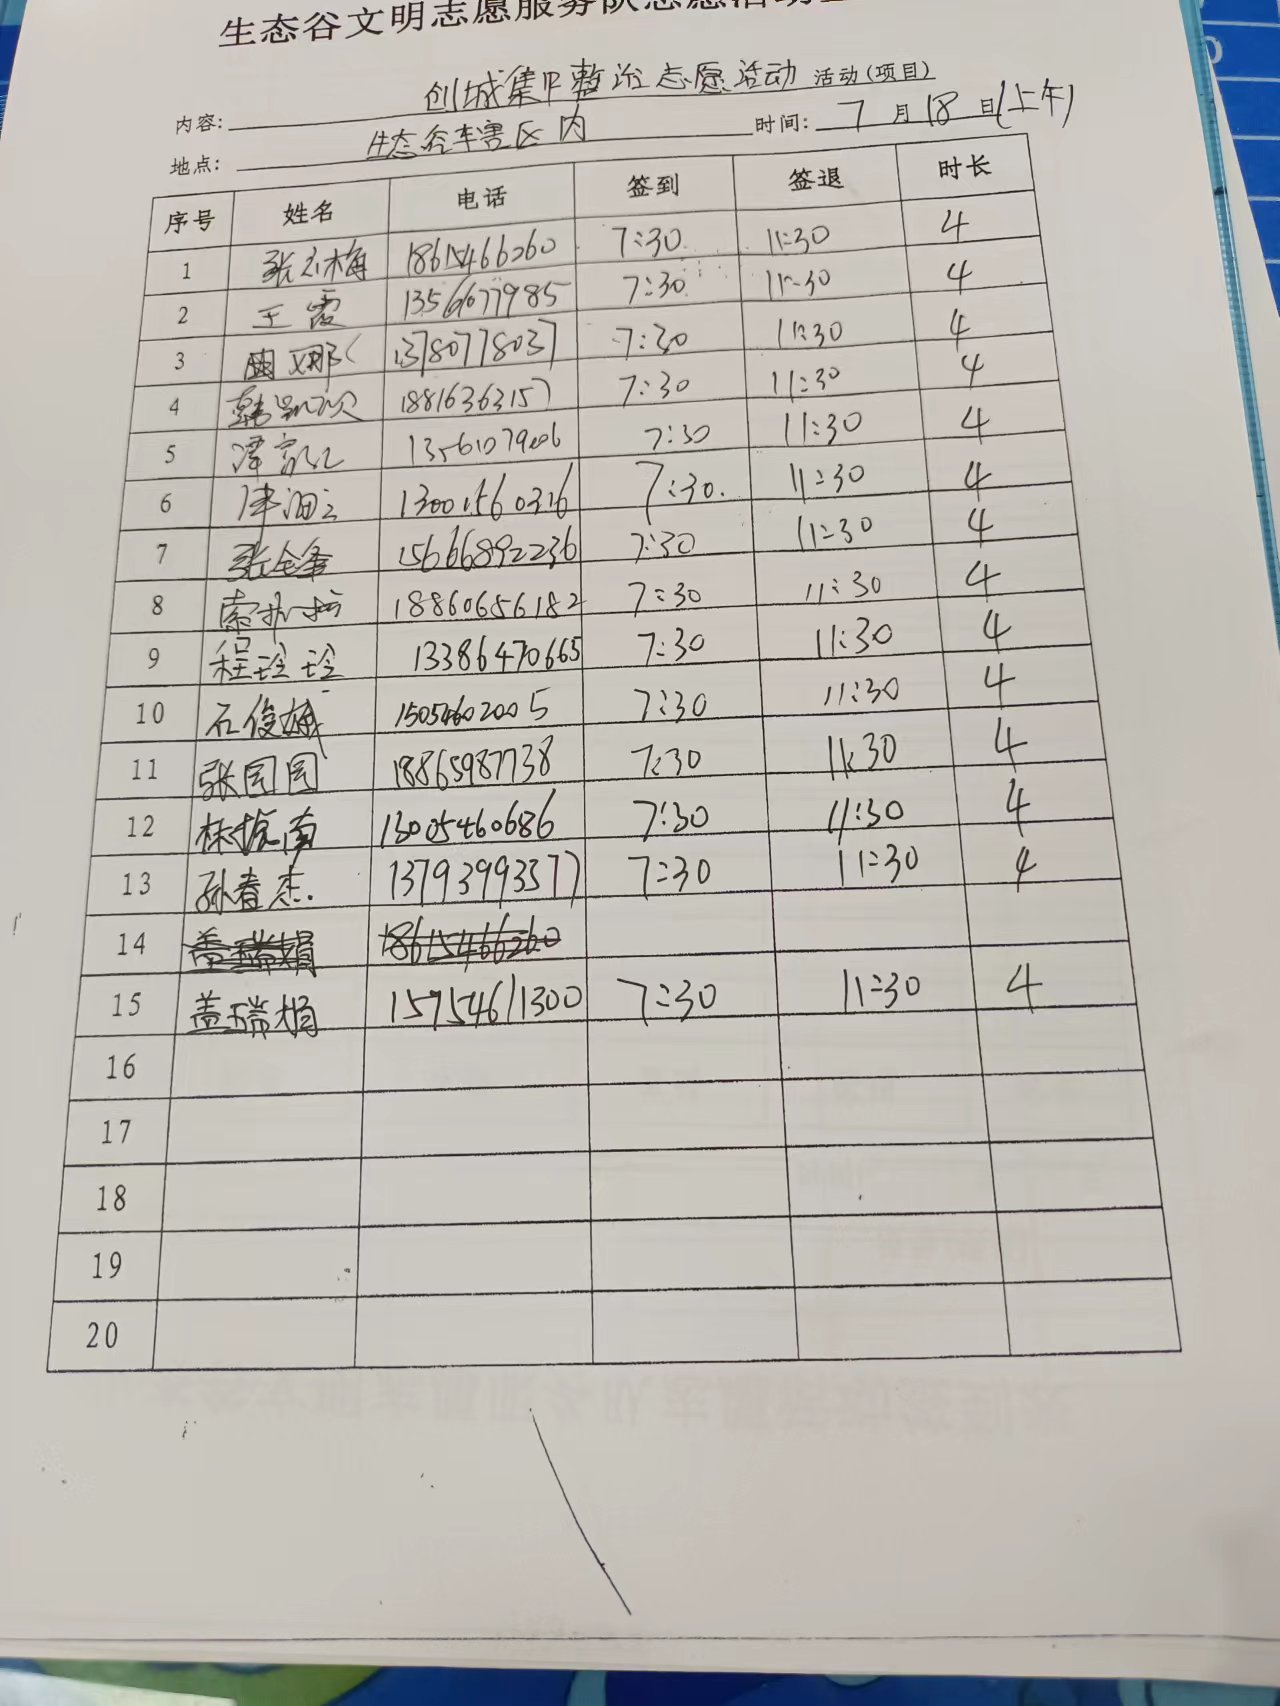 生态谷文明志愿服务队志愿活动
内容: 创城集中整治志愿活动 活动(项目)
地点: 生态谷车辖区内 时间: 7月18日(上午)
序号 姓名 电话 签到 签退 时长
1 18615466260 7:30 11:30 4
2 王霞 13561677985 7:30 11:30 4
3 13780778037 7:30 11:30 4
4 18816363157 7:30 11:30 4
5 7:30 11:30 4
6 13001560316 7:30. 11:30 4
7 15666892236 7:30 11:30 4
8 18860656182 7:30 11:30 4
9 程玲玲 13386470665 7:30 11:30 4
10 石俊娥 15054602005 7:30 11:30 4
11 张园园 18865987738 7:30 11:30 4
12 林振南 13005460686 7:30 11:30 4
13 孙春杰. 13793993577 7:30 11:30 4
14 盖瑞娟 18615466260
15 盖瑞娟 15754611300 7:30 11:30 4
16
17
18
19
20